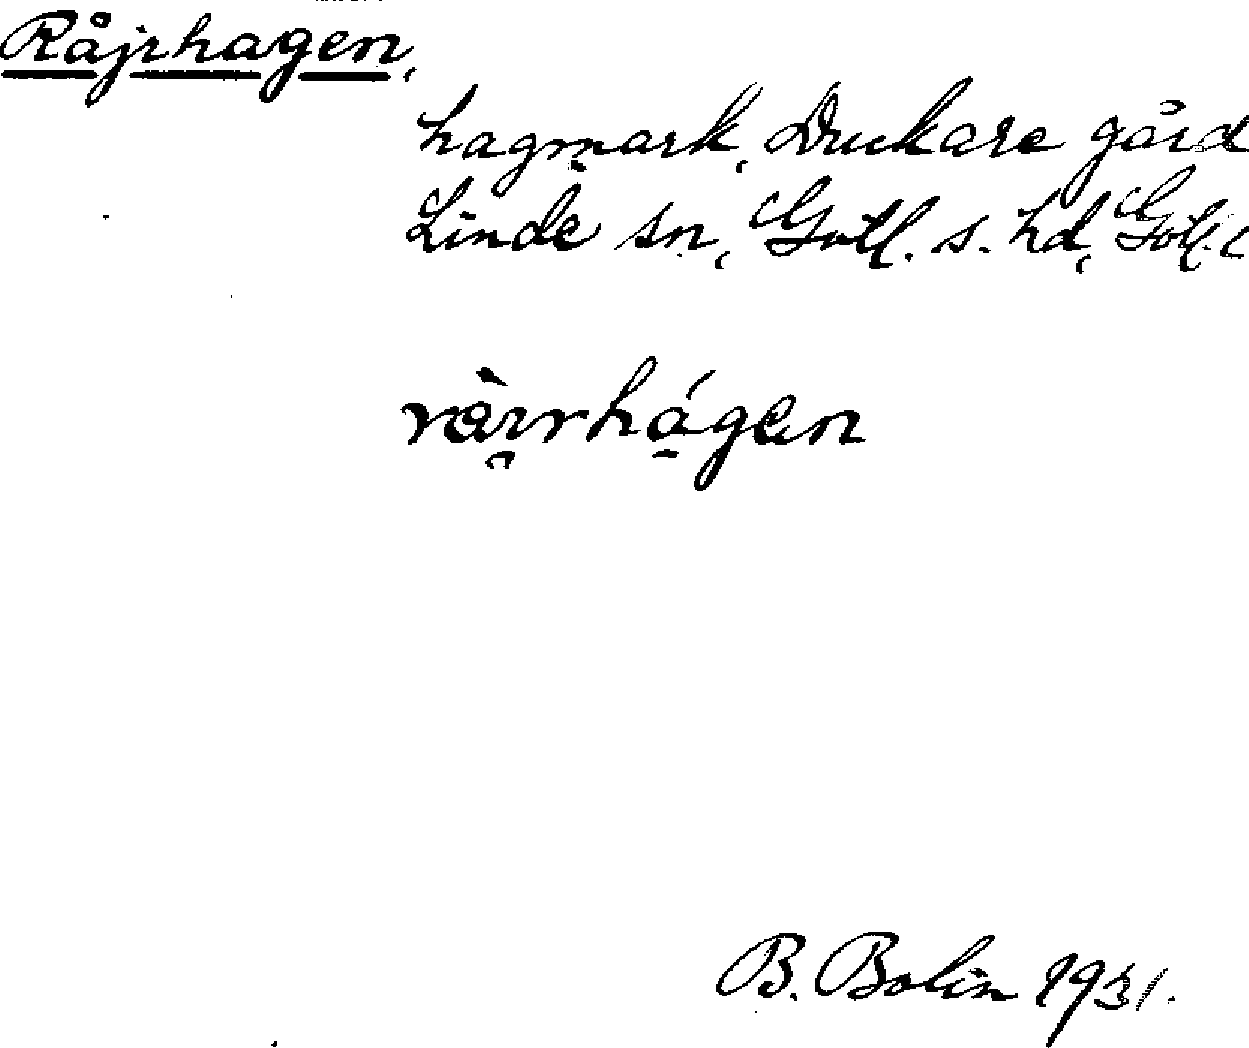 Råjrhagen,
hagmark, Duckare gård
Linde sn, Gotl. s. hd, Gotl. l
B. Bolin 1931.